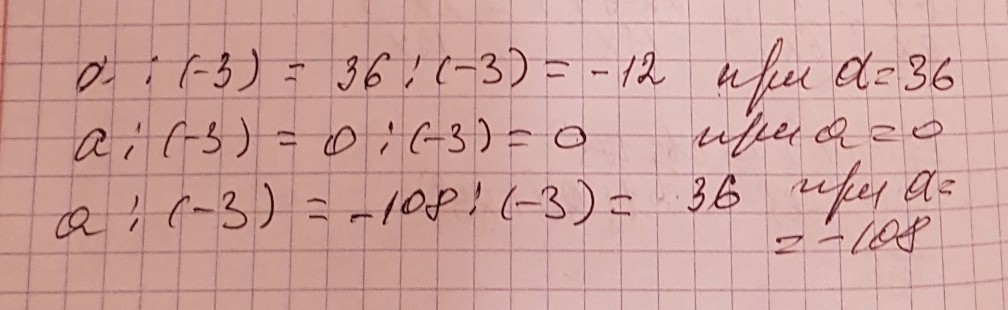 a : (-3) = 36 : (-3) = -12 при a = 36
a : (-3) = 0 : (-3) = 0 при a = 0
a : (-3) = -108 : (-3) = 36 при a =
= -108